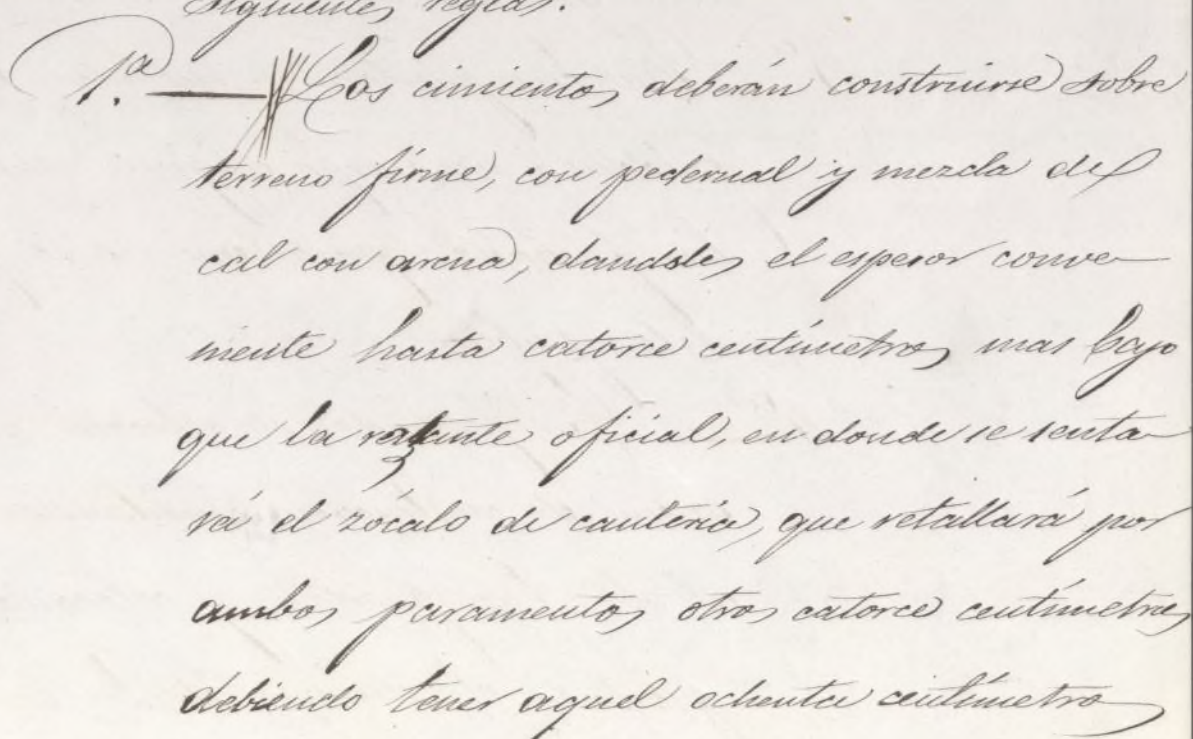 siguientes reglas.
1.ª — Los cimientos deberán construirse sobre
terreno firme, con pedernal y mezcla de
cal con arena, dandoles el espesor conve-
niente hasta catorce centímetros mas bajo
que la rasante oficial, en donde se senta-
rá el zócalo de cantería, que retallará por
ambos paramentos otros catorce centímetros
debiendo tener aquel ochenta centímetros